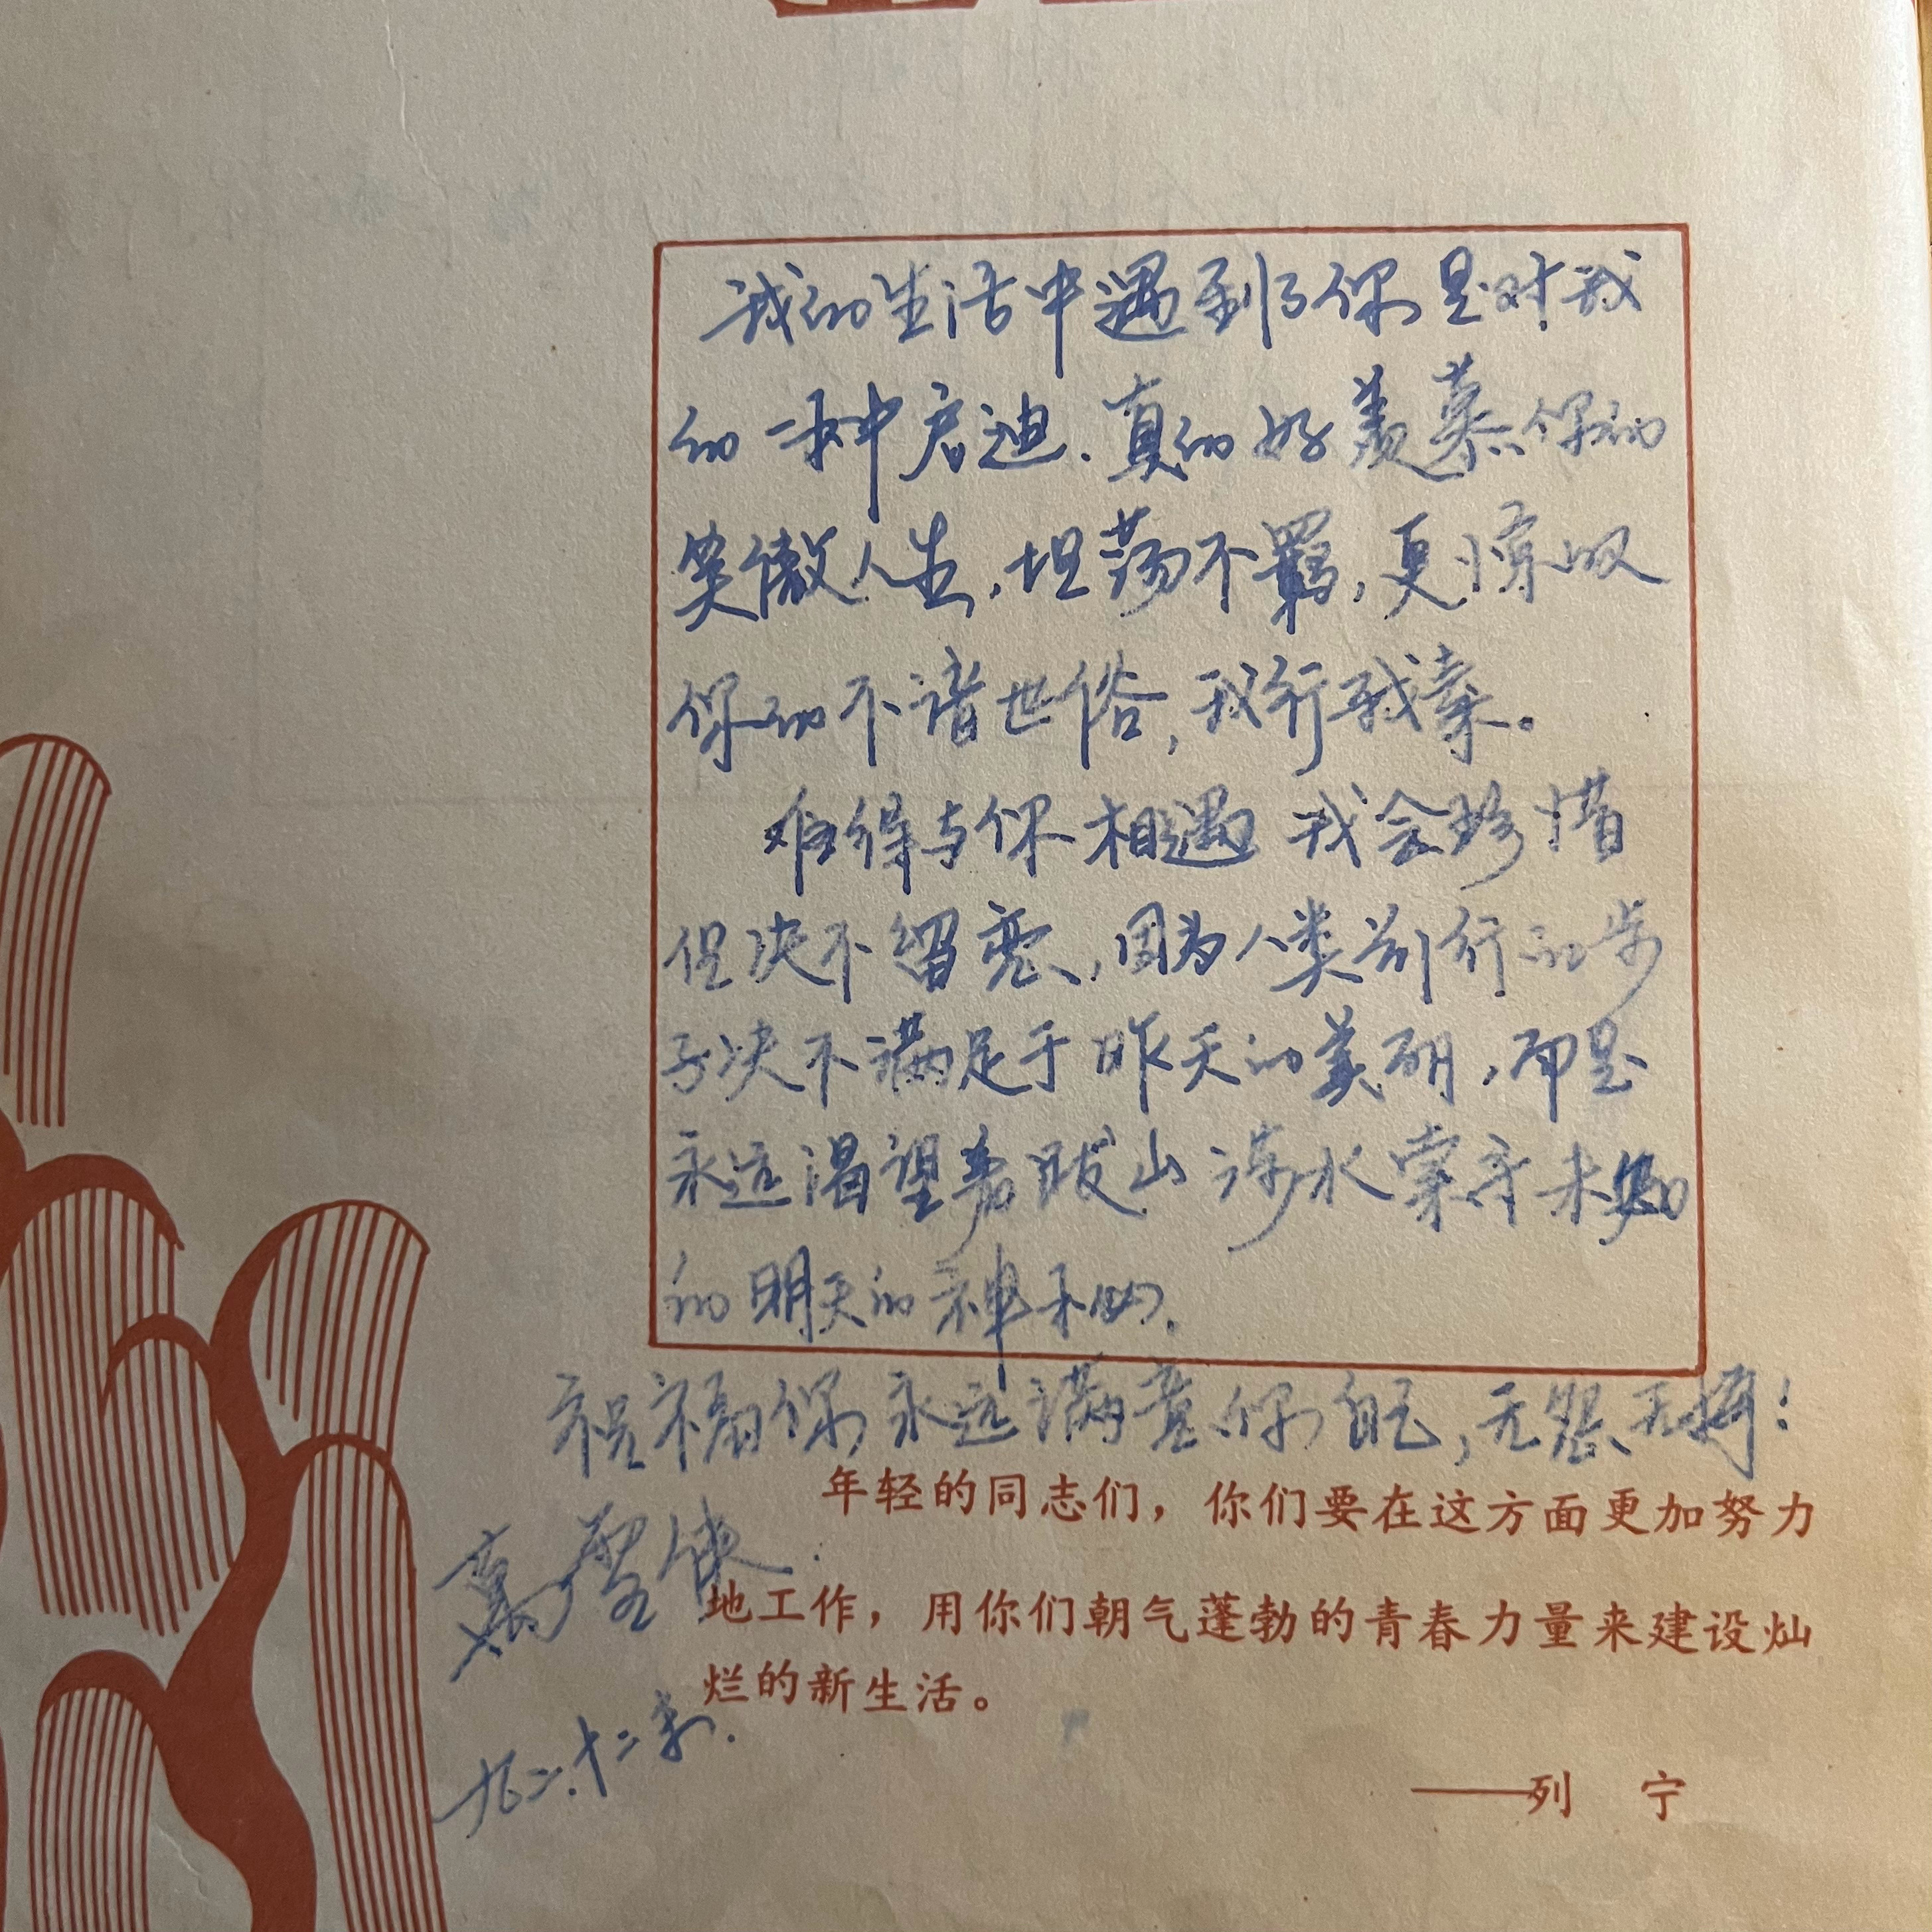 我的生活中遇到了你是对我
的一种启迪.真的好羡慕你的
笑傲人生,坦荡不羁,更惊叹
你的不谙世俗,我行我素。
难得与你相遇 我会珍惜
但决不留恋,因为人类前行的步
子决不满足于昨天的美丽,而是
永远渴望着跋山涉水索寻未知
的明天的神秘.
祝福你永远满意你自己,无怨无悔!
年轻的同志们，你们要在这方面更加努力
地工作，用你们朝气蓬勃的青春力量来建设灿
烂的新生活。
九二.十二
——列 宁